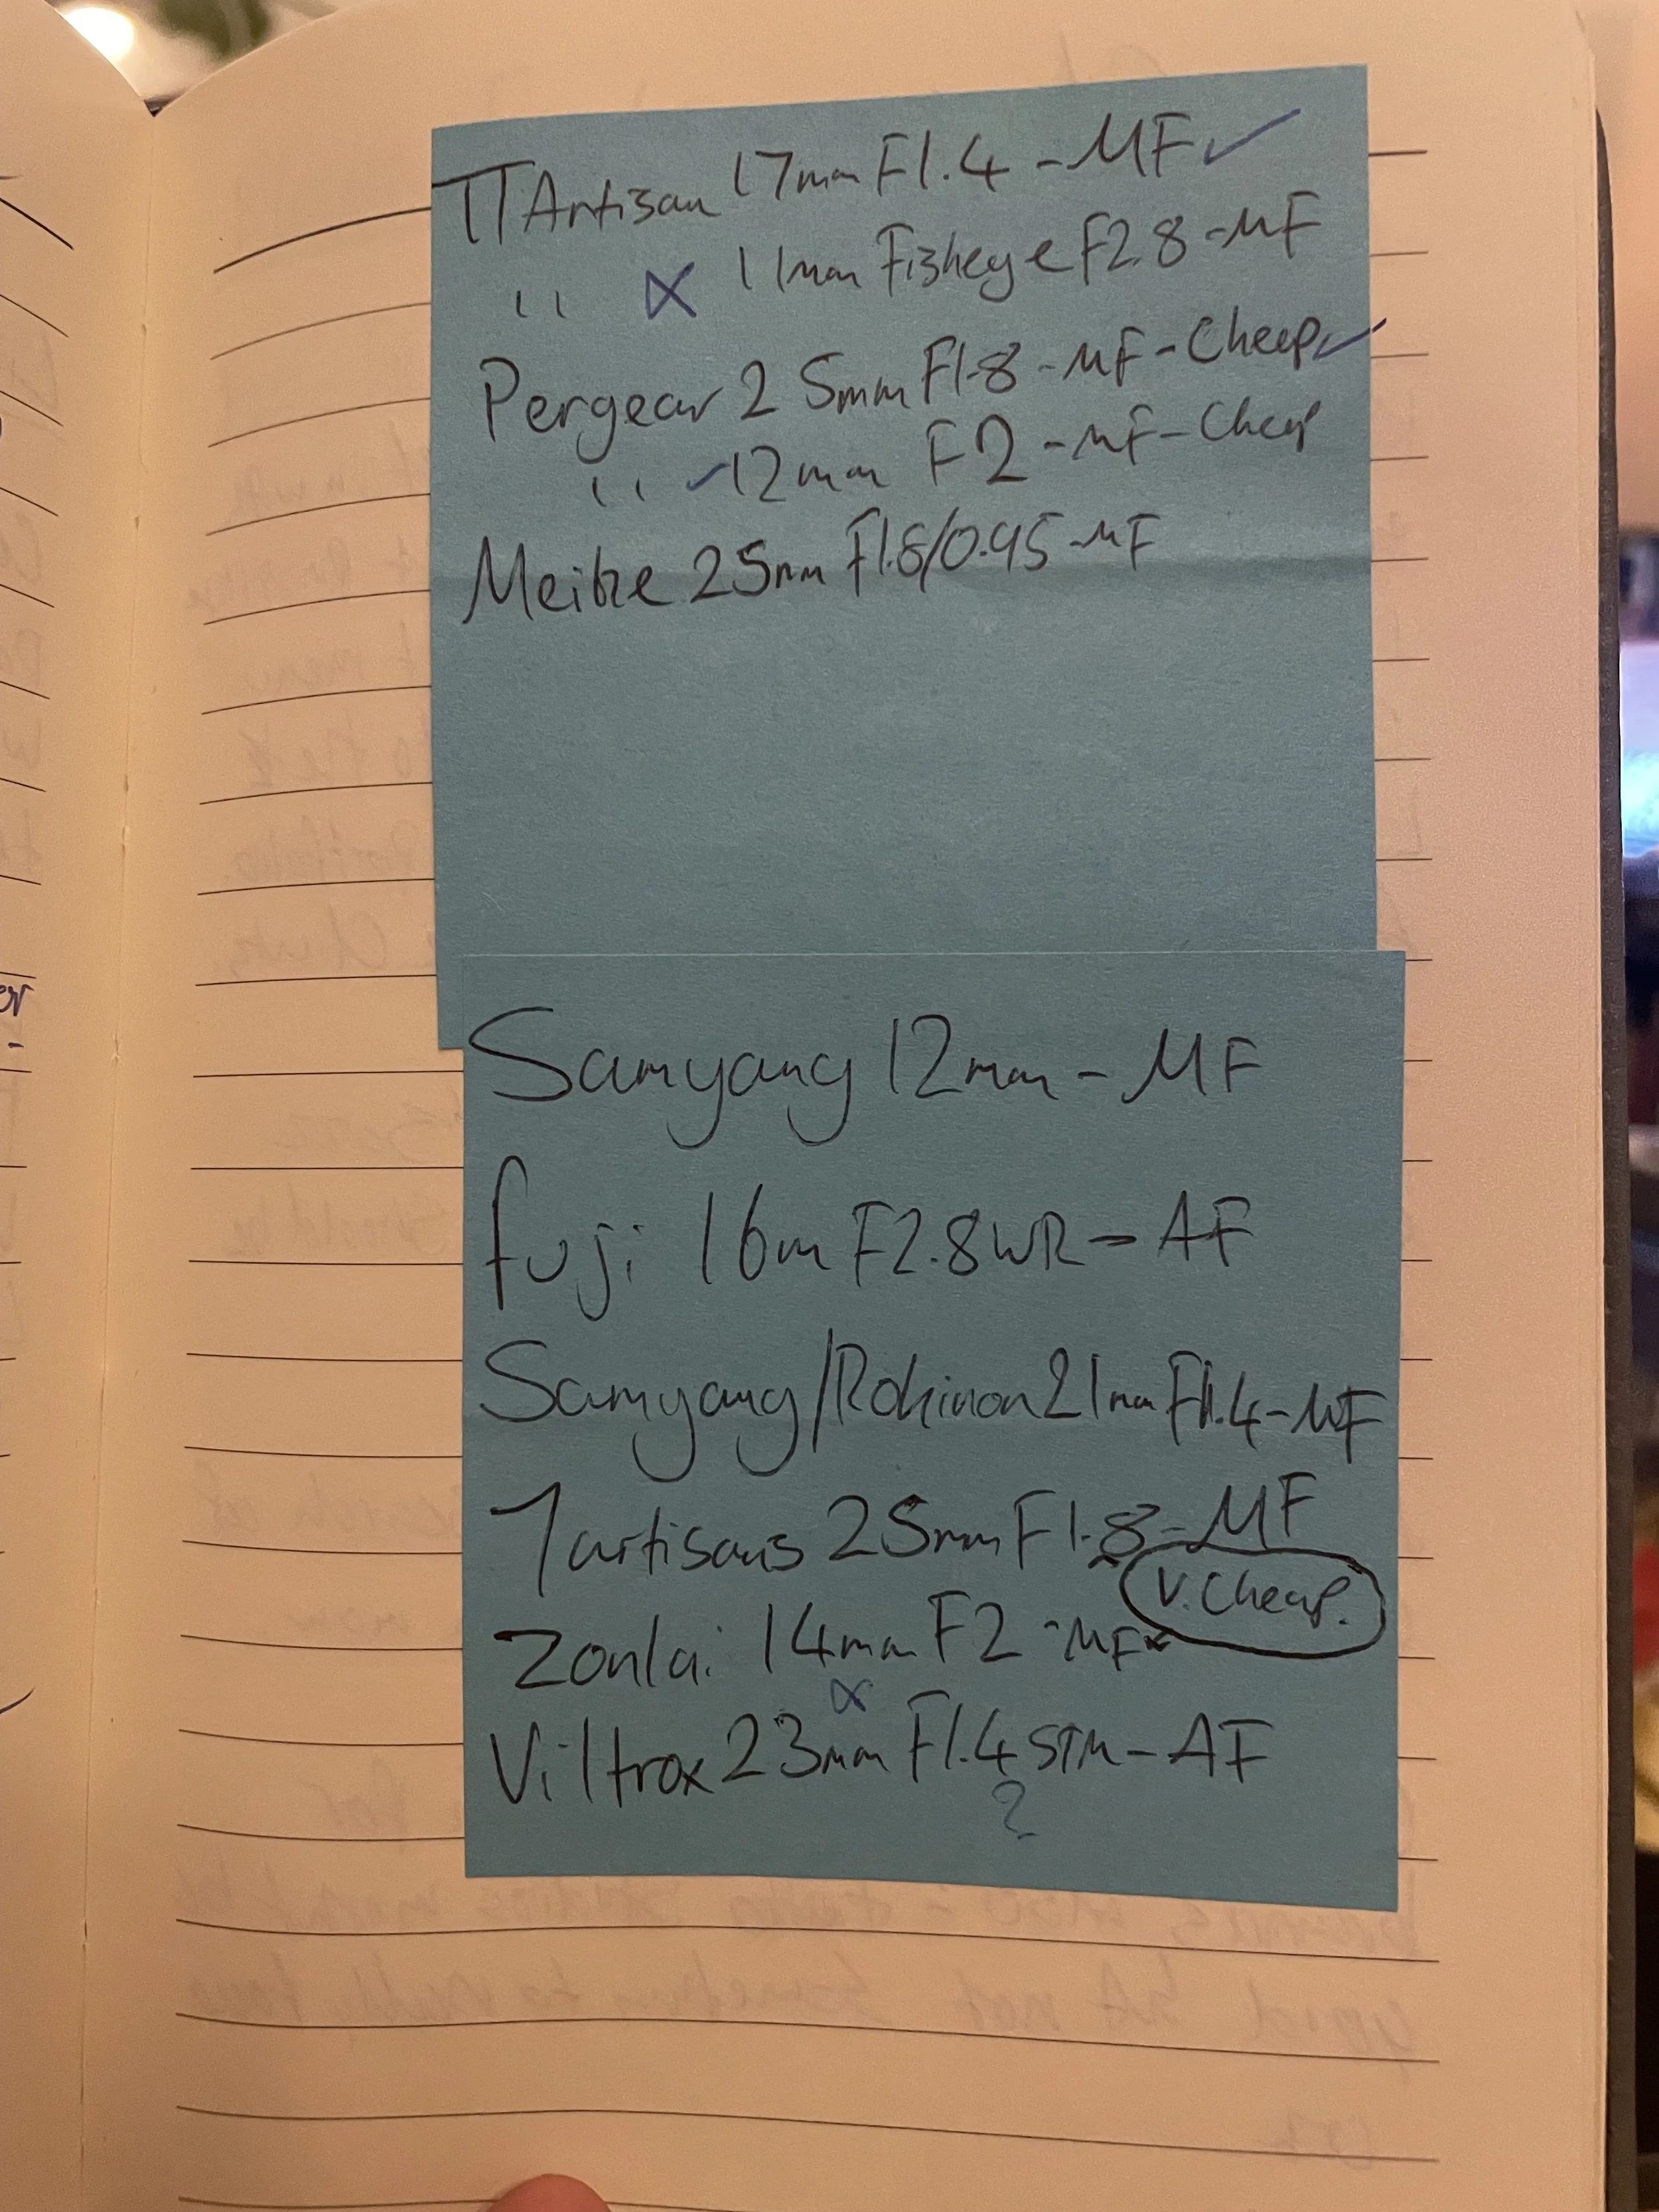 TTArtisan 17mm F1.4 - MF ✓
" ✗ 11mm Fisheye F2.8 - MF
Pergear 25mm F1.8 - MF - Cheap ✓
" ✓ 12mm F2 - MF - Cheap
Meike 25mm F1.8/0.95 - MF
Samyang 12mm - MF
fuji 16m F2.8 WR - AF
Samyang/Rokinon 21mm F1.4 - MF
7artisans 25mm F1.8 - MF
V. Cheap.
Zonlai 14mm F2 - MF
Viltrox 23mm F1.4 STM - AF
?
er